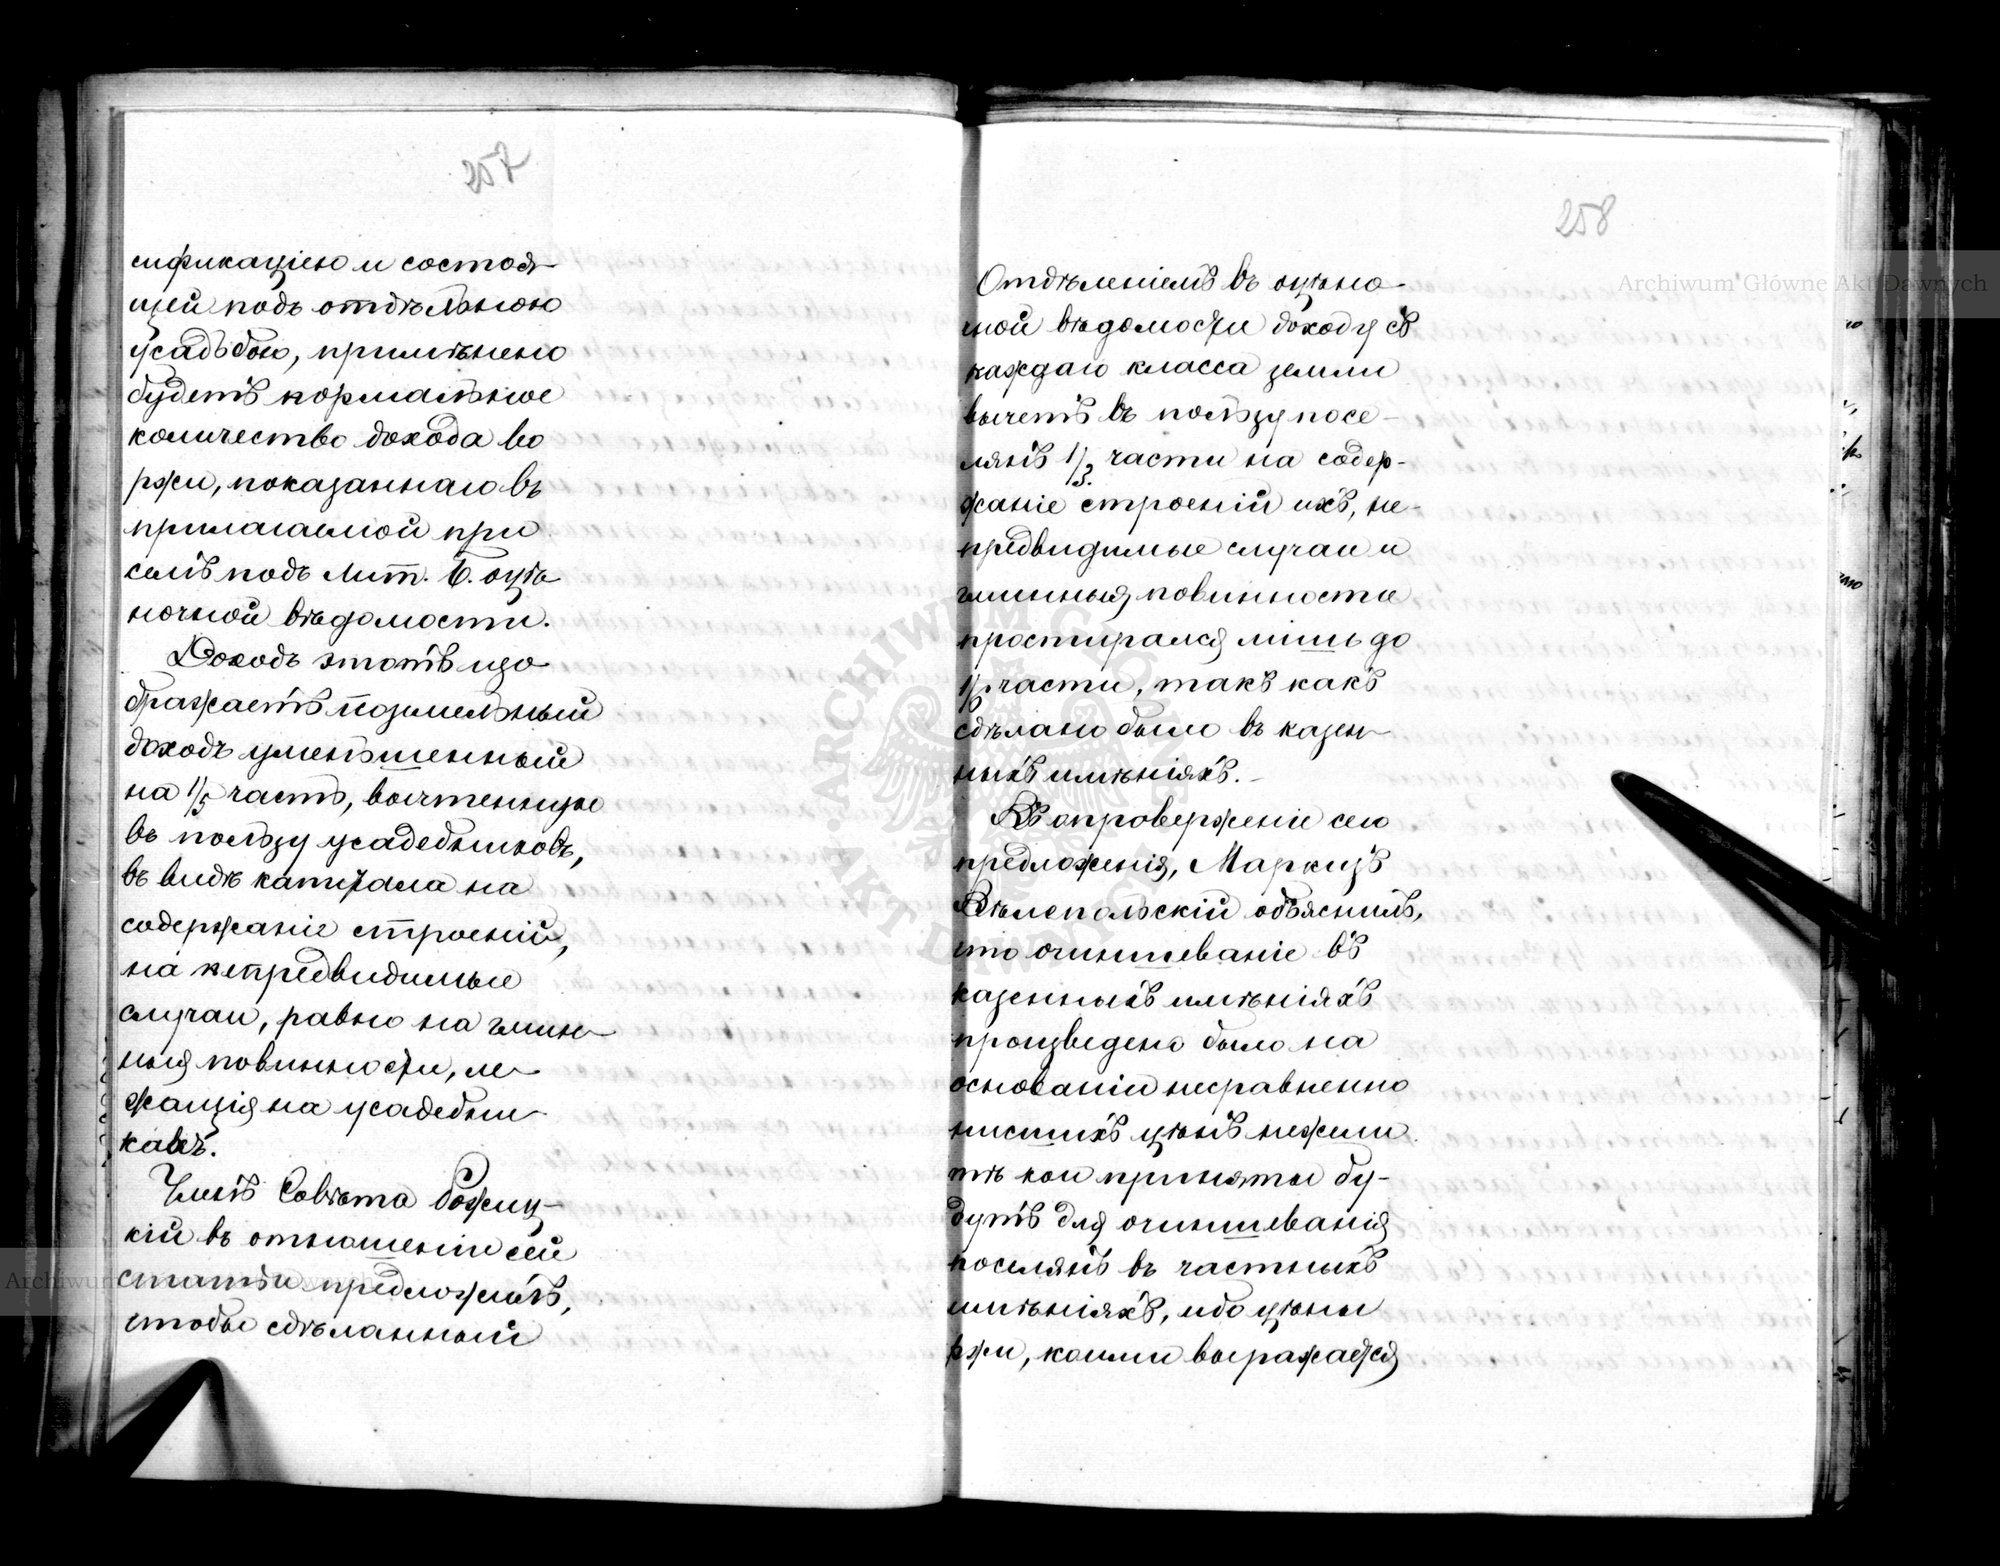 257
сификаціею и состоя-
щей подъ отдѣльною
усадьбою, примѣнено
будетъ нормальное
количество дохода во
ржи, показаннаго въ
прилагаемой при
семъ подъ Лит. Б. оцѣ-
ночной вѣдомости.
Доходъ этотъ изо-
бражаетъ поземельный
доходъ уменьшенный
на 1/5 часть, вычтенную
въ пользу усадебниковъ,
въ видѣ капитала на
содержаніе строеній,
на непредвидимые
случаи, равно на гмин-
ныя повинности, ле-
жащія на усадебни-
кахъ.
Членъ Совѣта Божиц-
кій въ отношеніи сей
статьи предложилъ,
чтобы сдѣланный
258
Отдѣленіемъ въ оцѣно-
чной вѣдомости доходу съ
каждаго класса земли
вычетъ въ пользу посе-
лянъ 1/3 части на содер-
жаніе строеній ихъ, не-
предвидимые случаи и
гминныя повинности
простирался лишь до
1/6 части, такъ какъ
сдѣлано было въ казен-
ныхъ имѣніяхъ.
Въ опроверженіе сего
предложенія, Маркизъ
Вѣлепольскій объяснилъ,
что очиншеваніе въ
казенныхъ имѣніяхъ
произведено было на
основаніи несравненно
нисшихъ цѣнъ нежели
тѣ кои приняты бу-
дутъ для очиншеванія
поселянъ въ частныхъ
имѣніяхъ, ибо цѣны
ржи, коими выражается
Archiwum Główne Akt Dawnych